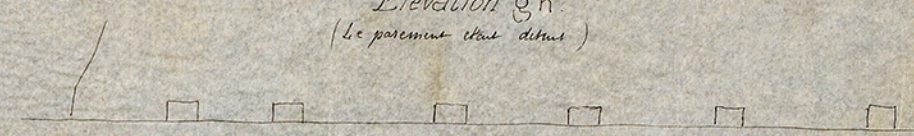 Elévation gh.
(Le parement étant détruit)